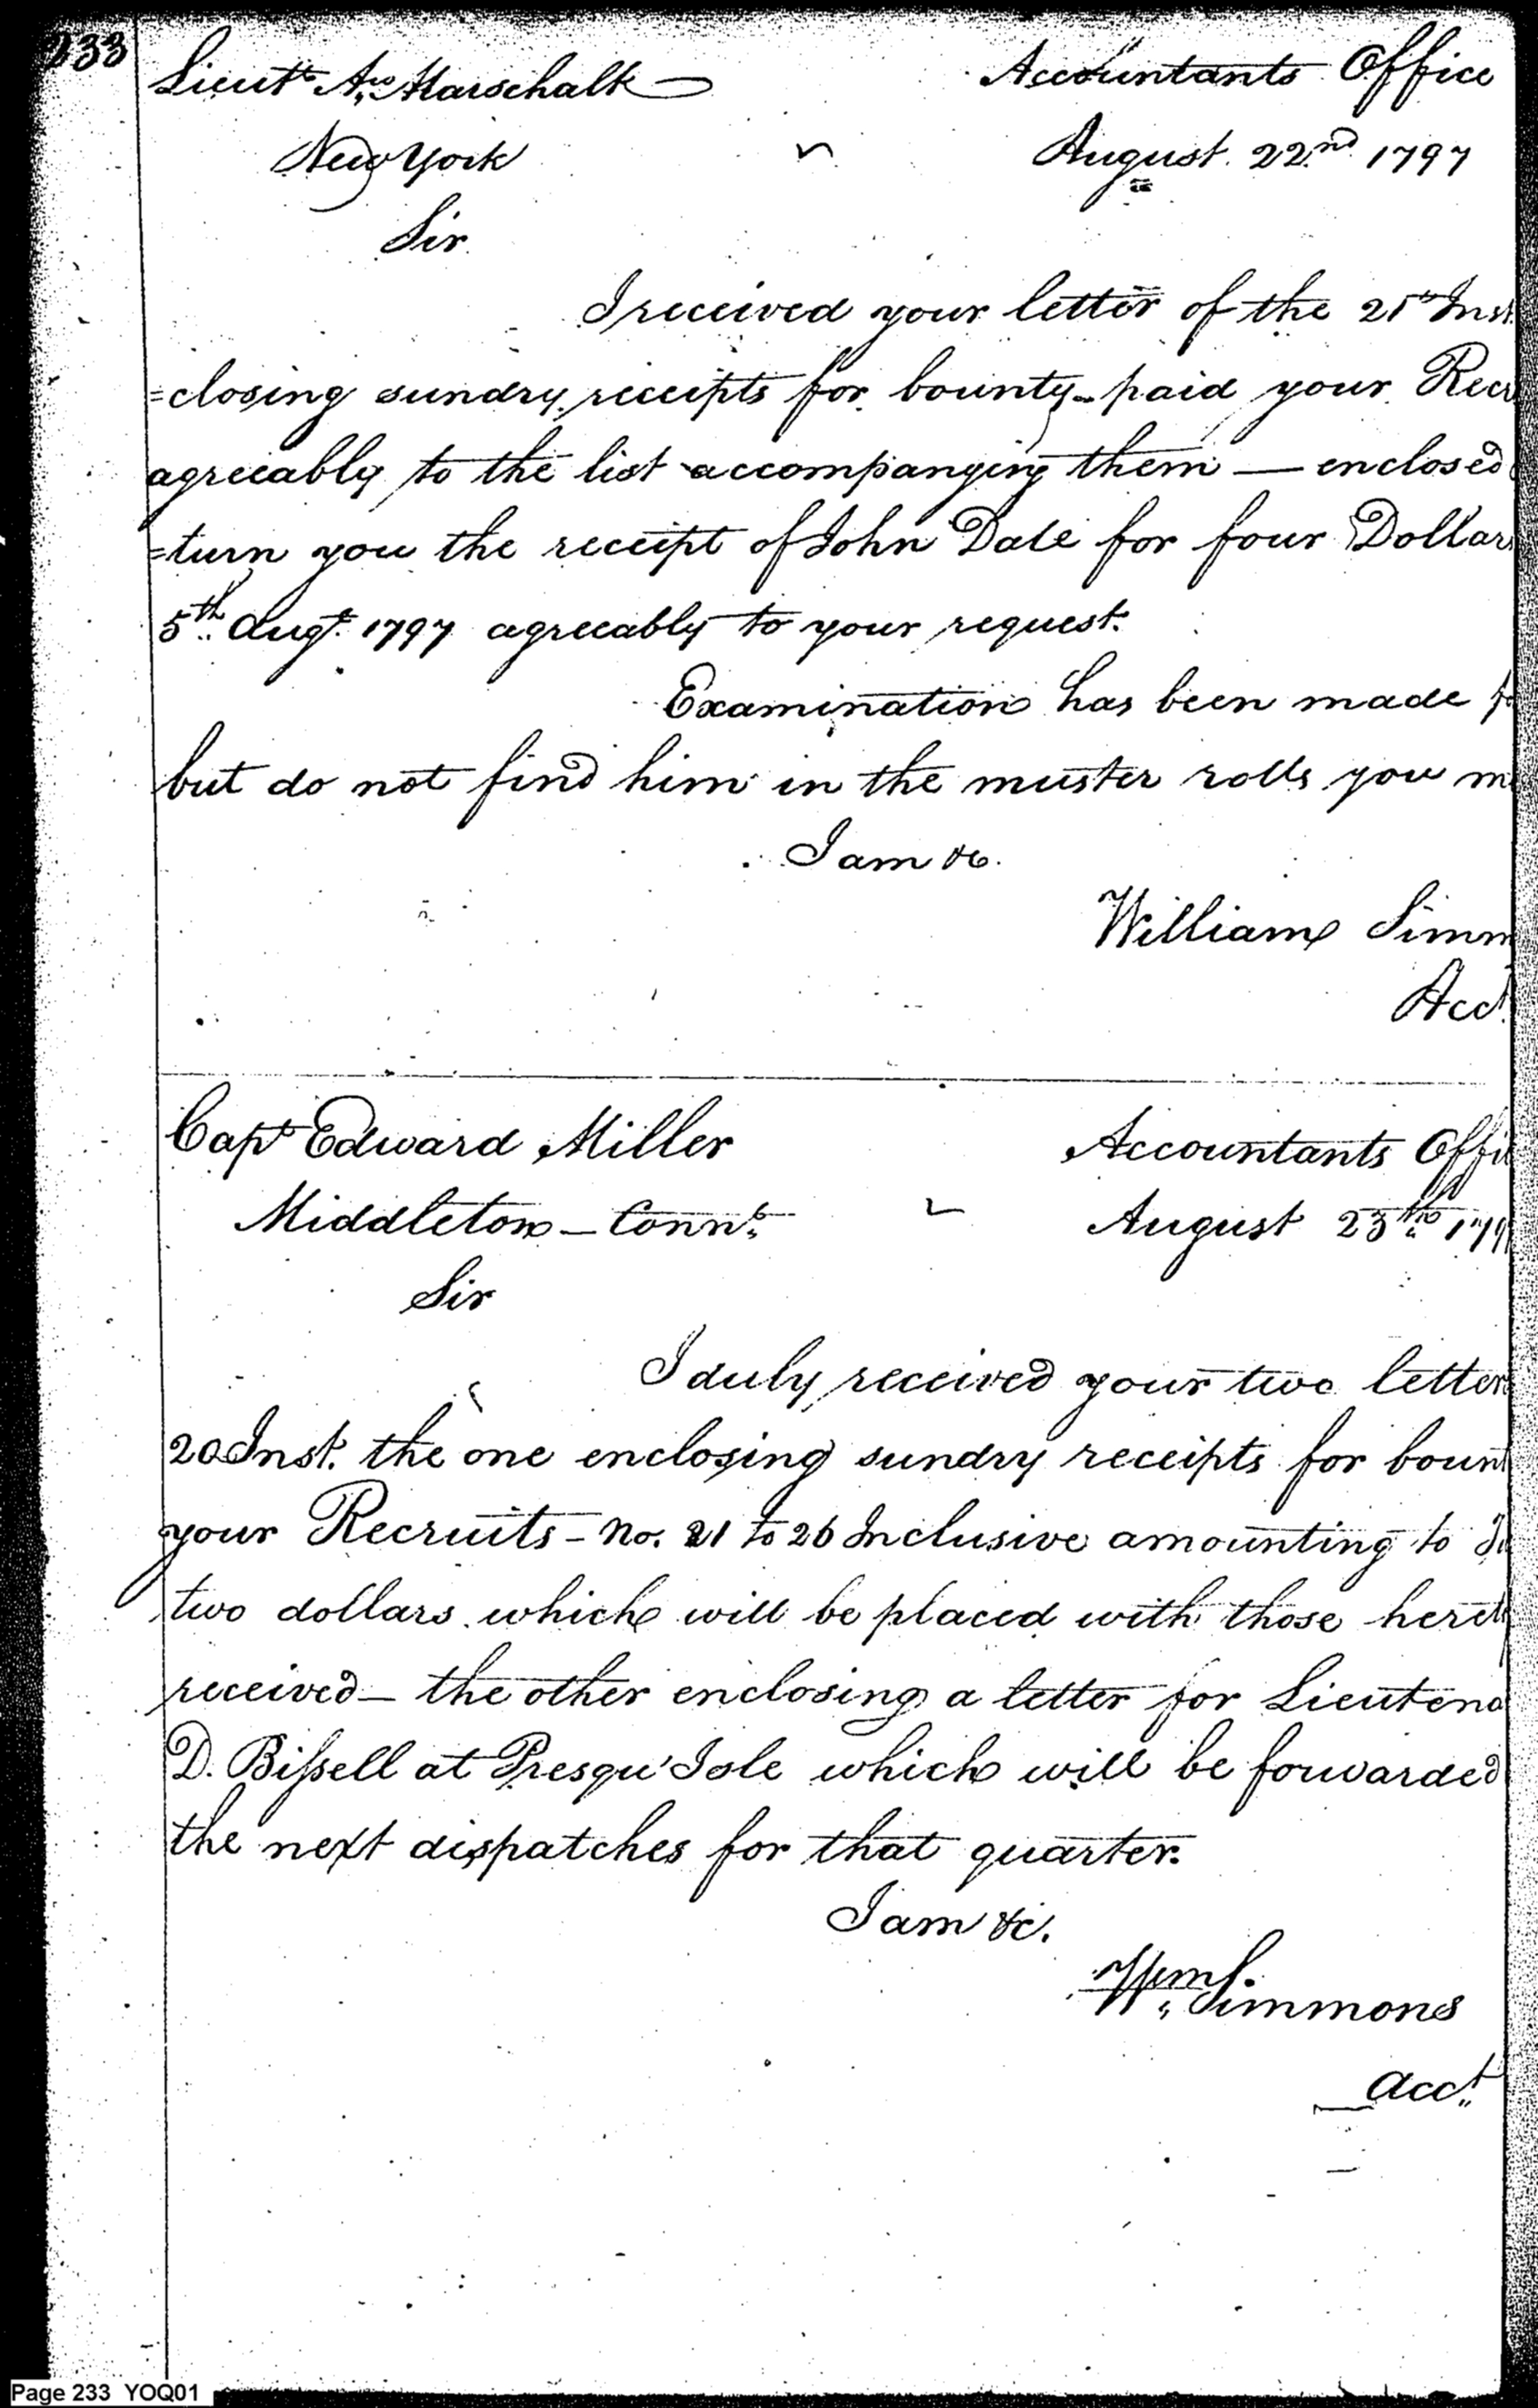 233
Lieutt. Aw. Marschalk Accountants Office
New York August 22nd. 1797
Sir
I received your letter of the 21st Inst.
=closing sundry receipts for bounty paid your Recr
agreeably to the list accompanying them — enclosed
=turn you the receipt of John Dale for four Dollars
5th. Augt. 1797 agreeably to your request.
Examination has been made
but do not find him in the muster rolls you m
I am &c.
William Simm
Acct.
Capt Edward Miller Accountants Offi
Middleton — Connt. August 23th. 179
Sir
I duly received your two letter
20 Inst. the one enclosing sundry receipts for bount
your Recruits — No. 21 to 26 Inclusive amounting to
two dollars which will be placed with those hereto
received — the other enclosing a letter for Lieutena
D. Bissell at Presqu' Isle which will be forwarded
the next dispatches for that quarter.
I am &c.
Wm. Simmons
Acct.
Page 233 YOQ01